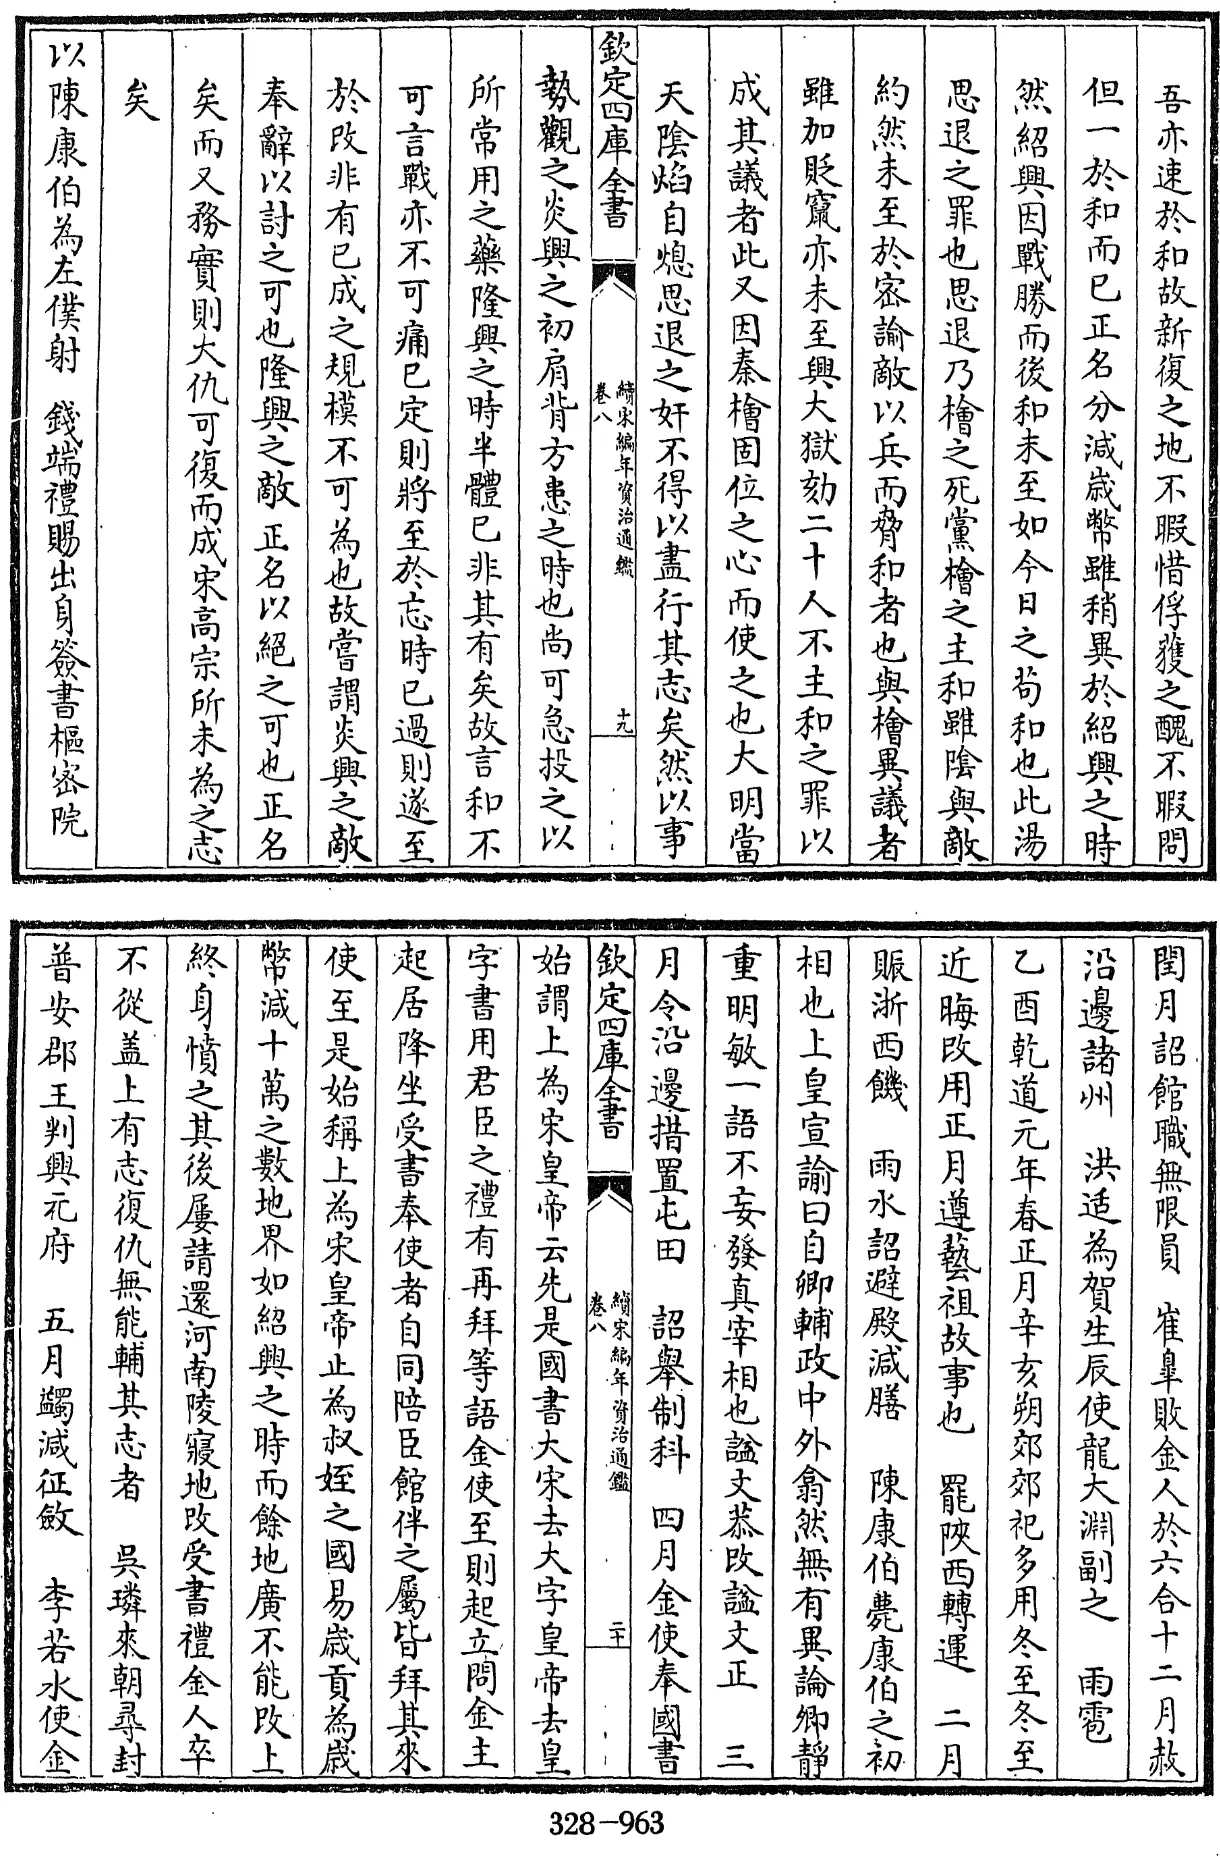 吾亦速於和故新復之地不暇惜俘獲之醜不暇問
但一於和而已正名分減歲幣雖稍異於紹興之時
然紹興因戰勝而後和未至如今日之苟和也此湯
思退之罪也思退乃檜之死黨檜之主和雖陰與敵
約然未至於密諭敵以兵而脅和者也與檜異議者
雖加貶竄亦未至興大獄劾二十人不主和之罪以
成其議者此又因秦檜固位之心而使之也大明當
天陰焰自熄思退之奸不得以盡行其志矣然以事
欽定四庫全書
續宋編年資治通鑑
卷八
十九
勢觀之炎興之初肩背方患之時也尚可急投之以
所常用之藥隆興之時半體已非其有矣故言和不
可言戰亦不可痛已定則將至於忘時已過則遂至
於改非有已成之規模不可為也故嘗謂炎興之敵
奉辭以討之可也隆興之敵正名以絕之可也正名
矣而又務實則大仇可復而成宋高宗所未為之志
矣
以陳康伯為左僕射 錢端禮賜出身簽書樞密院
閏月詔館職無限員 崔臯敗金人於六合十二月赦
沿邊諸州 洪适為賀生辰使龍大淵副之 雨雹
乙酉乾道元年春正月辛亥朔郊郊祀多用冬至冬至
近晦改用正月遵藝祖故事也 罷陝西轉運 二月
賑浙西饑 雨水詔避殿減膳 陳康伯薨康伯之初
相也上皇宣諭曰自卿輔政中外翕然無有異論卿靜
重明敏一語不妄發真宰相也諡文恭改諡文正 三
月令沿邊措置屯田 詔舉制科 四月金使奉國書
欽定四庫全書
續宋編年資治通鑑
卷八
二十
始謂上為宋皇帝云先是國書大宋去大字皇帝去皇
字書用君臣之禮有再拜等語金使至則起立問金主
起居降坐受書奉使者自同陪臣館伴之屬皆拜其來
使至是始稱上為宋皇帝止為叔姪之國易歲貢為歲
幣減十萬之數地界如紹興之時而餘地廣不能改上
終身憤之其後屢請還河南陵寢地改受書禮金人卒
不從盖上有志復仇無能輔其志者 吳璘來朝尋封
普安郡王判興元府 五月蠲減征斂 李若水使金
328-963